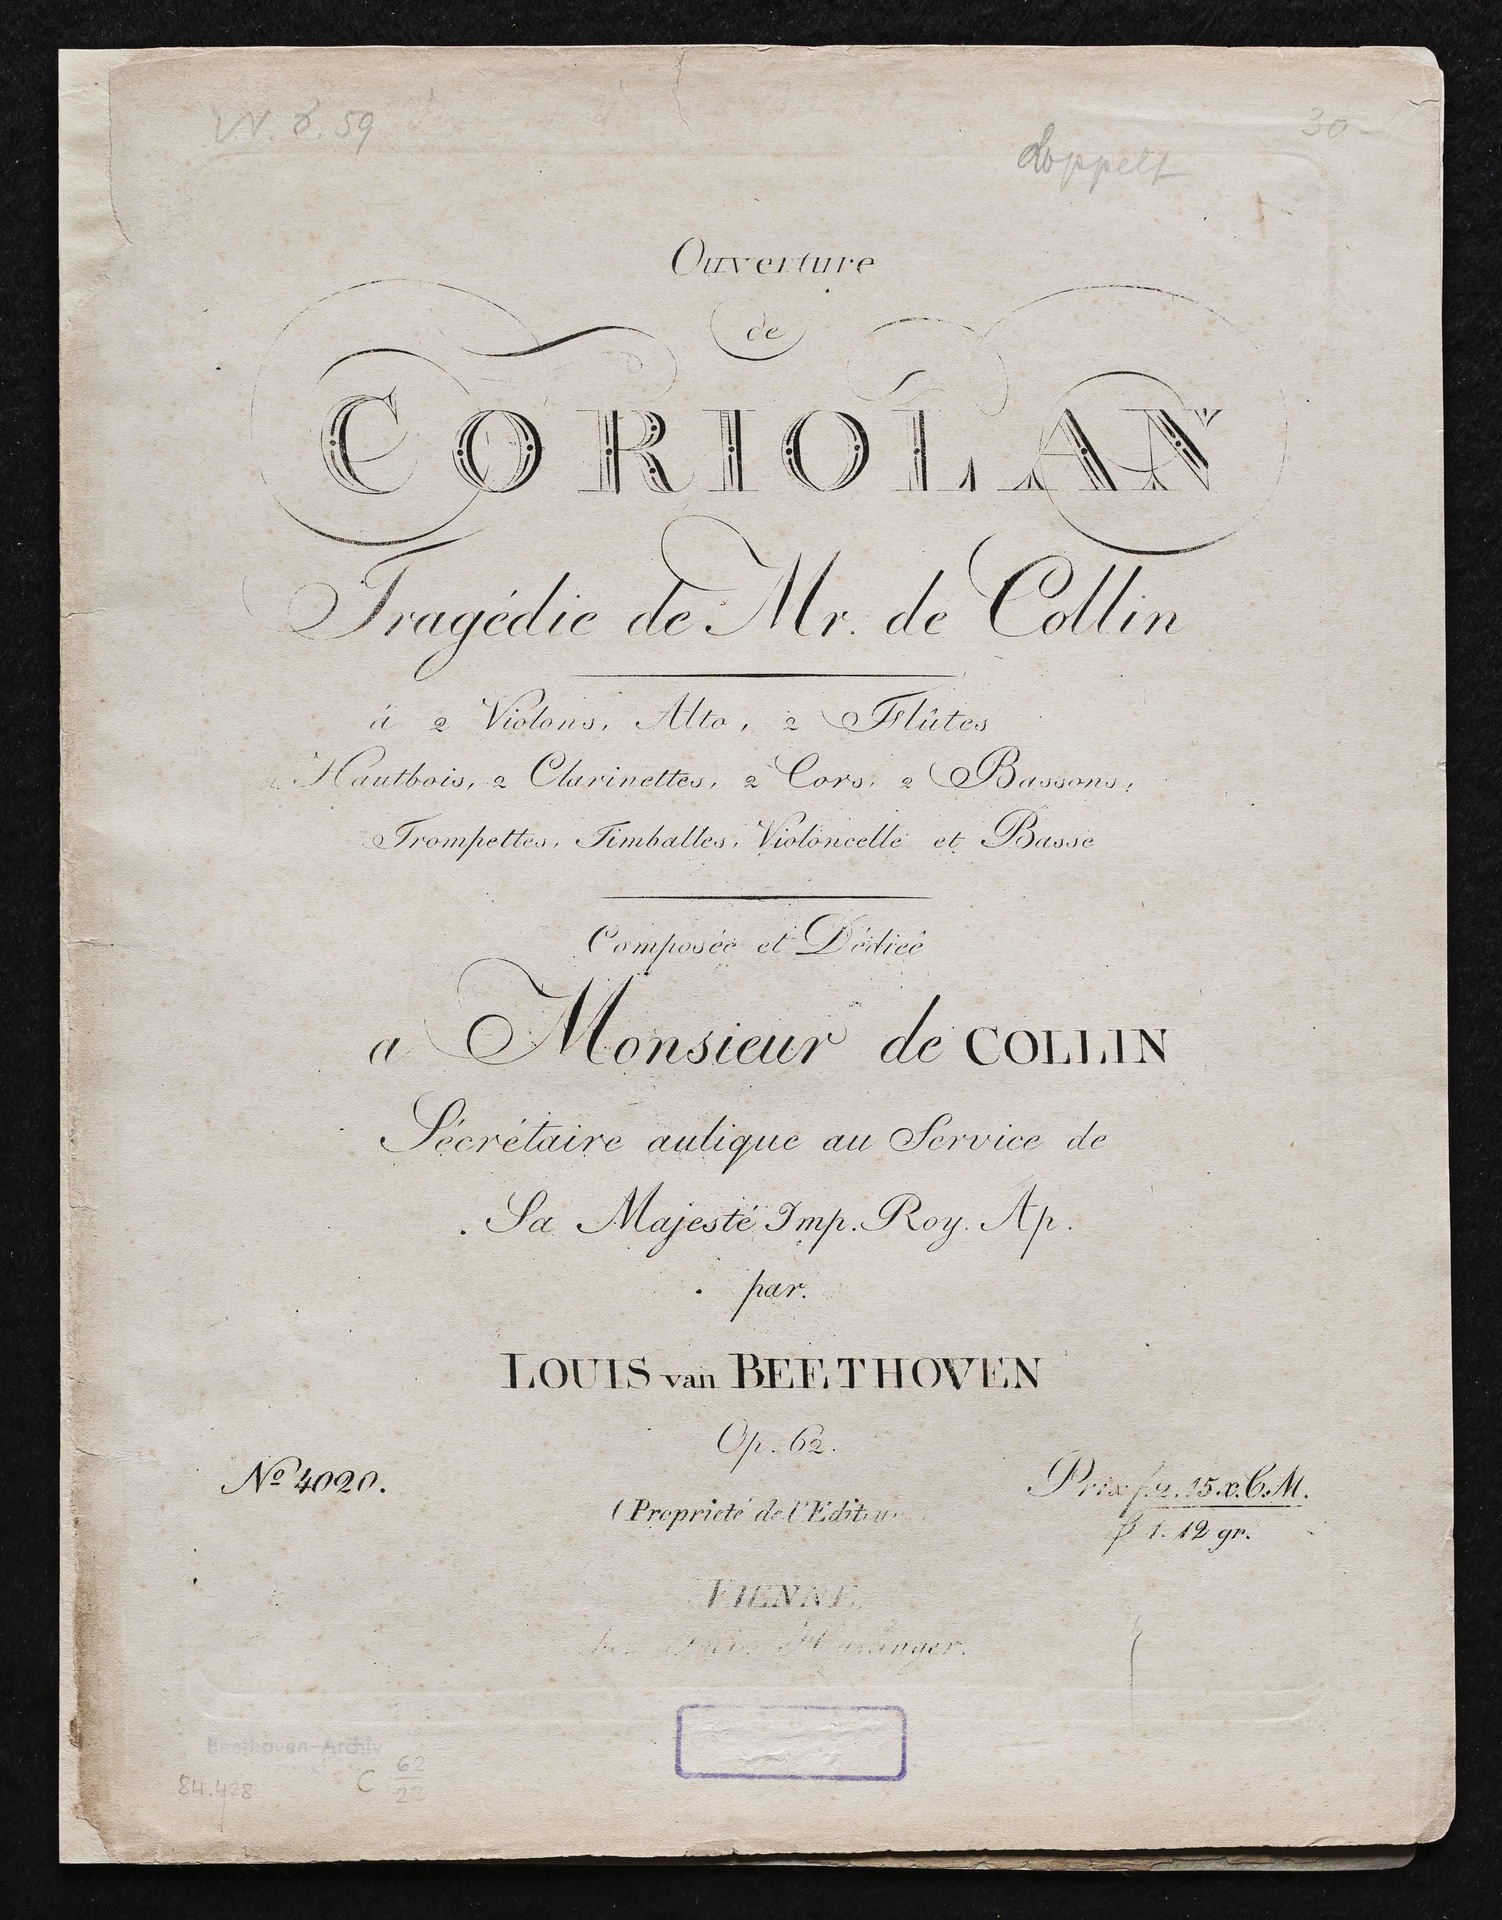 W. 8. 59
30-
doppelt
Ouverture
de
CORIOLAN
Tragédie de Mr. de Collin
à 2 Violons, Alto, 2 Flûtes
Hautbois, 2 Clarinettes, 2 Cors, 2 Bassons,
Trompettes, Timballes, Violoncelle et Basse
Composée et Dédieé
a Monsieur de COLLIN
Sécrétaire aulique au Service de
Sa Majesté Imp. Roy. Ap.
par.
LOUIS van BEETHOVEN
Op. 62.
No 4020.
Prix f. 2. 15.x. C.M.
1. 12 gr.
(Proprieté de l'Editeur
VIENNE,
Haslinger.
Beethoven-Archiv
84.428
C 62
22